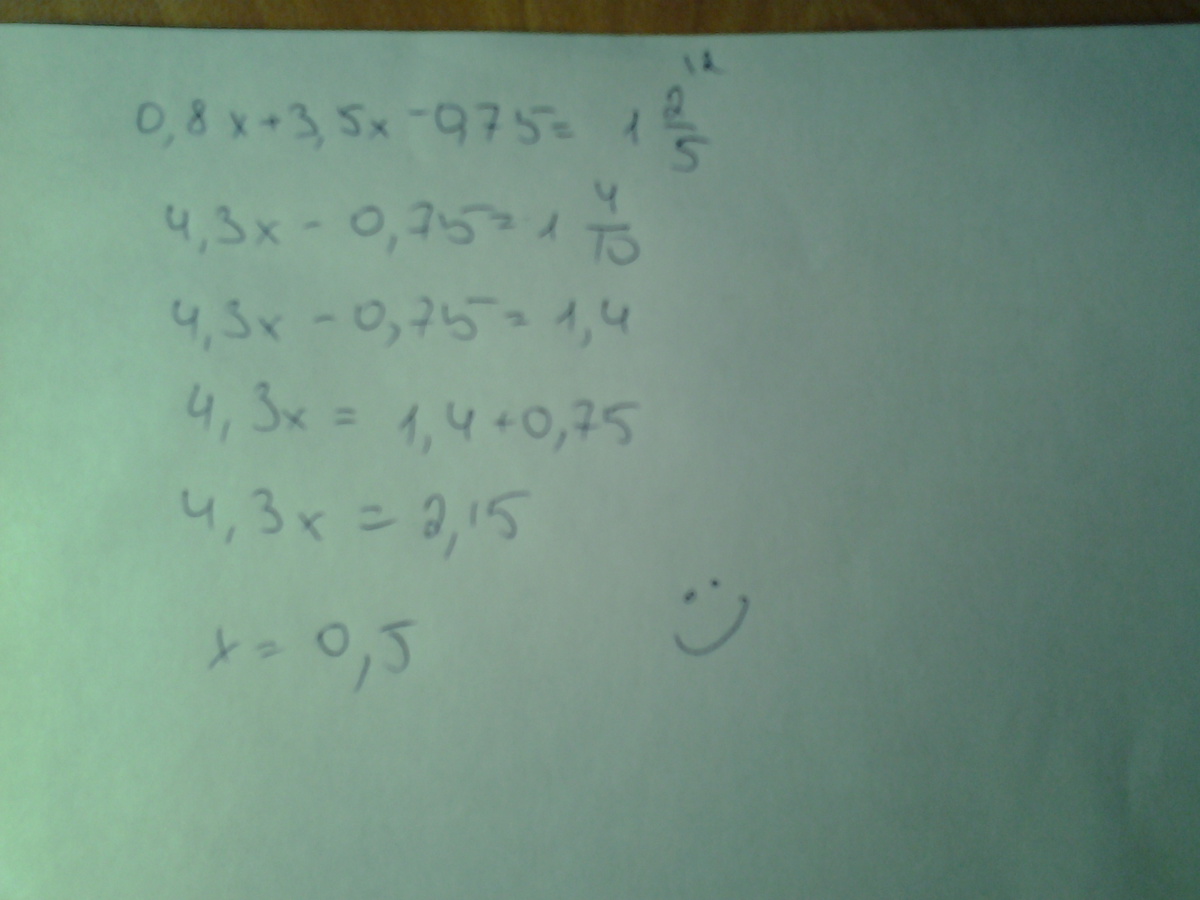 0,8x+3,5x-0,75= 1 2/5 12
4,3x - 0,75= 1 4/10
4,3x - 0,75= 1,4
4,3x = 1,4+0,75
4,3x = 2,15
x= 0,5